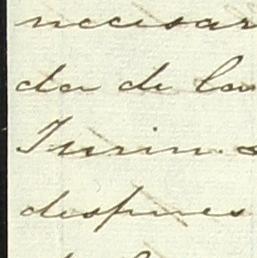 necesar
da de la
Turin
despues